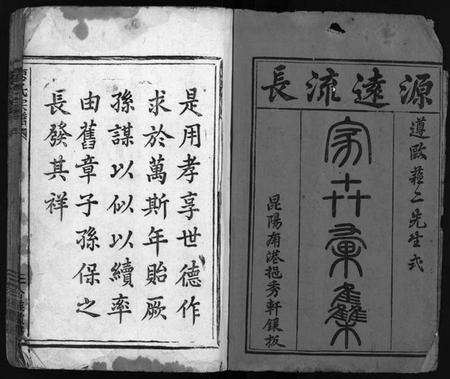 源逺流長
遵歐蘓二先生式
昆陽南港挹秀軒鐫板
是用孝享世德作
求於萬斯年貽厥
孫謀以似以續率
由舊章子孫保之
長發其祥